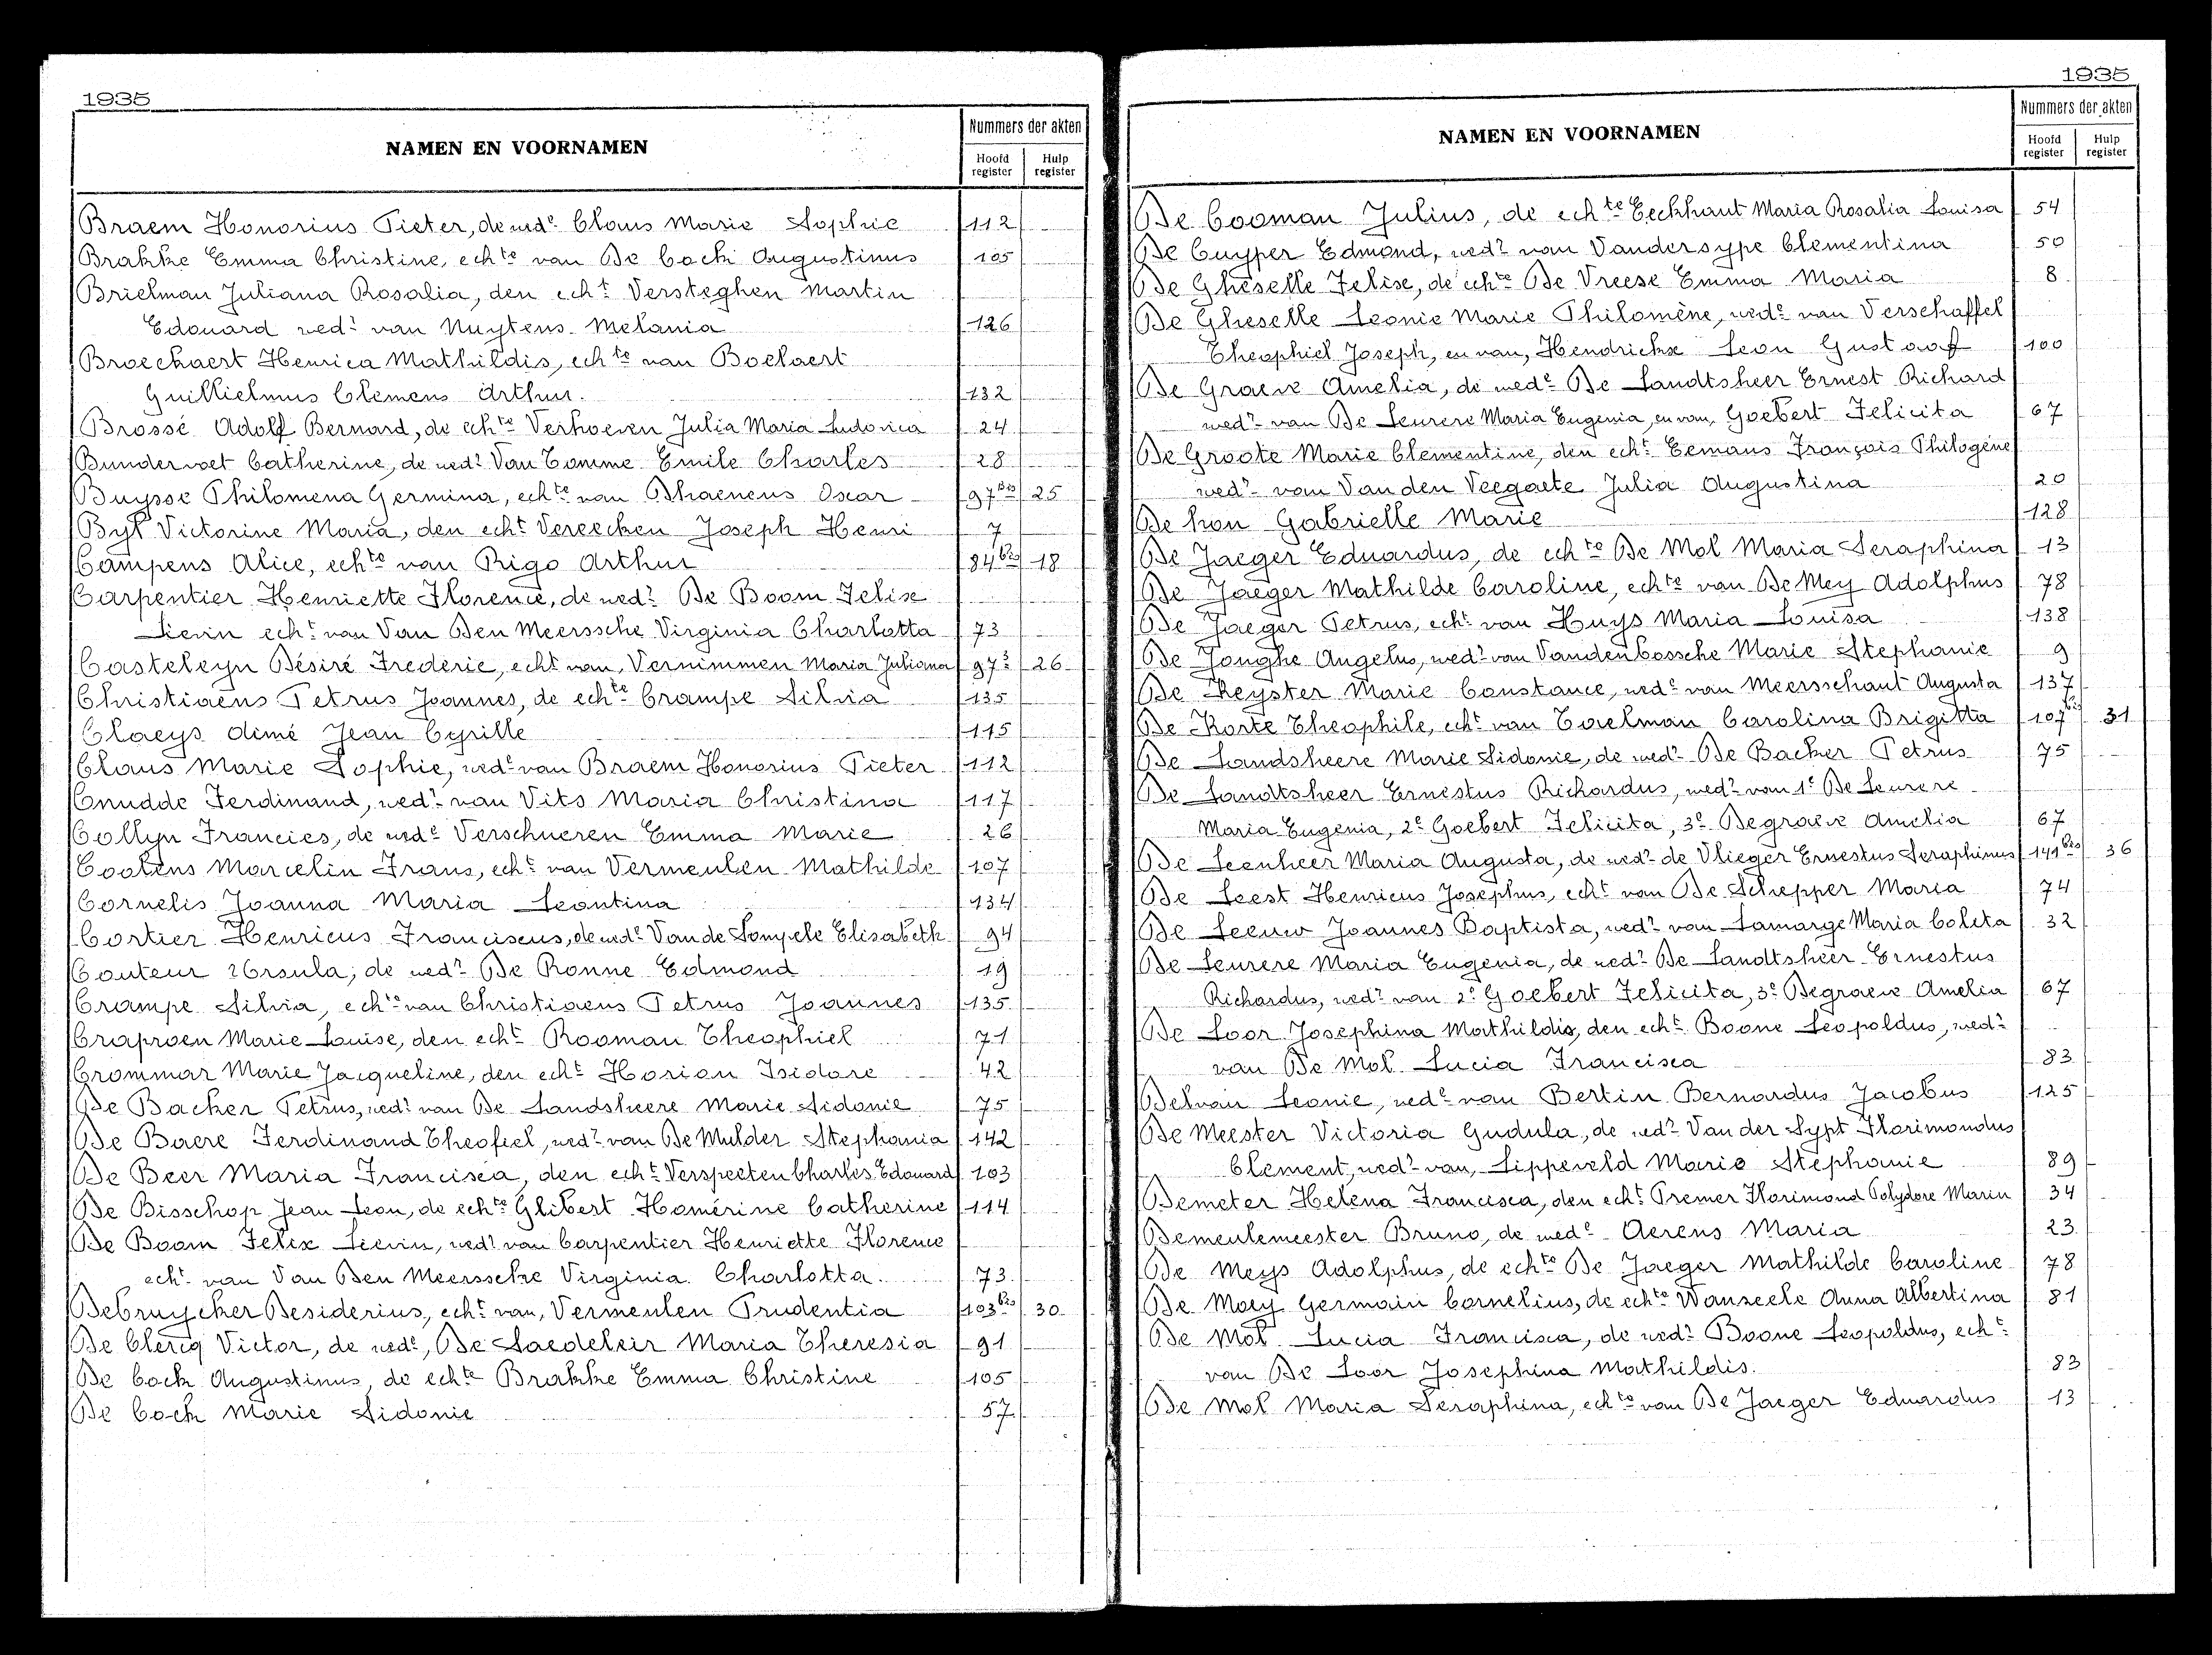 1935
NAMEN EN VOORNAMEN
Nummers der akten
Hoofd register
Hulp register
Braem Honorius Pieter, de wedᵉ Claus Marie Sophie 112
Brakke Emma Christine, echᵗᵉ van De Cock Augustinus 105
Brielman Juliana Rosalia, den echᵗ Versteghen Martin
Edouard wedʳ van Nuytens Melania 126
Broeckaert Henrica Mathildis, echᵗᵉ van Boelaert
Guillielmus Clemens Arthur. 132
Brossé Adolf Bernard, de echᵗᵉ Verhoeven Julia Maria Ludovica 24
Bundervoet Catherine, de wedʳ Van Tomme Emile Charles 28
Buysse Philomena Germina, echᵗᵉ van Dhaeneus Oscar 97ᵇⁱˢ 25
Byl Victorine Maria, den echᵗ Vereecken Joseph Henri 7
Campens Alice, echᵗᵉ van Rigo Arthur 84ᵇⁱˢ 18
Carpentier Henriette Florence, de wedʳ De Boom Felix
Lievin echᵗ van Van Den Meerssche Virginia Charlotta 73
Casteleyn Désiré Frederic, echᵗ van Vernimmen Maria Juliana 97³ 26
Christiaens Petrus Joannes, de echᵗᵉ Crampe Silvia 135
Claeys Aimé Jean Cyrille 115
Claus Marie Sophie, wedᵉ van Braem Honorius Pieter 112
Cnudde Ferdinand, wedʳ van Vits Maria Christina 117
Collyn Francies, de wedᵉ Verschueren Emma Marie 26
Coolens Marcelin Frans, echᵗ van Vermeulen Mathilde 107
Cornelis Joanna Maria Leontina 134
Cortier Henricus Franciscus, de wedᵉ Van de Sompele Elisabeth 94
Couteur Ursula, de wedʳ De Ronne Edmond 19
Crampe Silvia, echᵗᵉ van Christiaens Petrus Joannes 135
Craproen Marie Louise, den echᵗ Rooman Theophiel 71
Crommar Marie Jacqueline, den echᵗ Horion Isidore 42
De Backer Petrus, wedʳ van De Landsheere Marie Sidonie 75
De Baere Ferdinand Theofiel, wedʳ van De Mulder Stephania 142
De Beer Maria Francisca, den echᵗ Verspeeten Charles Edouard 103
De Bisschop Jean Leon, de echᵗᵉ Glibert Homérine Catherine 114
De Boom Felix Lievin, wedʳ van Carpentier Henriette Florence
echᵗ van Van Den Meerssche Virginia Charlotta. 73
Debruycker Desiderius, echᵗ van, Vermeulen Prudentia 103ᵇⁱˢ 30
De Clercq Victor, de wedᵉ, De Saedeleir Maria Theresia 91
De Cock Augustinus, de echᵗᵉ Brakke Emma Christine 105
De Cock Marie Sidonie 57
1935
NAMEN EN VOORNAMEN
Nummers der akten
Hoofd register
Hulp register
De Cooman Julius, de echᵗᵉ Eeckhaut Maria Rosalia Louisa 54
De Cuyper Edmond, wedʳ van Vandersype Clementina 50
De Gheselle Felix, de echᵗᵉ De Vreese Emma Maria 8
De Gheselle Leonie Marie Philomène, wedᵉ van Verschaffel
Theophiel Joseph, en van, Hendrickx Leon Gustaaf 100
De Graeve Amelia, de wedᵉ De Landtsheer Ernest Richard
wedʳ van De Leurere Maria Eugenia, en van, Goebert Felicita 67
De Groote Marie Clementine, den echᵗ Eemans François Philogène
wedʳ van Van den Veegaete Julia Augustina 20
De hon Gabrielle Marie 128
De Jaeger Eduardus, de echᵗᵉ De Mol Maria Seraphina 13
De Jaeger Mathilde Caroline, echᵗᵉ van De Mey Adolphus 78
De Jaeger Petrus, echᵗ van Huys Maria Louisa 138
De Jonghe Angelus, wedʳ van Vandenbossche Marie Stephanie 9
De Keyster Marie Constance, wedᵉ van Meersschaut Augusta 137
De Korte Theophile, echᵗ van Torelman Carolina Brigitta 107ᵇⁱˢ 31
De Landsheere Marie Sidonie, de wedʳ De Backer Petrus 75
De Landtsheer Ernestus Richardus, wedʳ van 1ᵉ De Leurere
Maria Eugenia, 2ᵉ Goebert Felicita, 3ᵉ Degraeve Amelia 67
De Leenheer Maria Augusta, de wedʳ de Vlieger Ernestus Seraphinus 141ᵇⁱˢ 36
De Leest Henricus Josephus, echᵗ van De Schepper Maria 74
De Leeuw Joannes Baptista, wedʳ van Lamarge Maria Coleta 32
De Leurere Maria Eugenia, de wedʳ De Landtsheer Ernestus
Richardus, wedʳ van 2ᵉ Goebert Felicita, 3ᵉ Degraeve Amelia 67
De Loor Josephina Mathildis, den echᵗ Boone Leopoldus, wedʳ
van De Mol Lucia Francisca 83
Delvair Leonie, wedᵉ van Bertin Bernardus Jacobus 125
De Meester Victoria Gudula, de wedʳ Van der Sypt Florimondus
Clement, wedʳ van, Lippeveld Marie Stephanie 89
Demeter Helena Francisca, den echᵗ Premer Florimond Polydore Marin 34
Demeulemeester Bruno, de wedᵉ Aerens Maria 23
De Meys Adolphus, de echᵗᵉ De Jaeger Mathilde Caroline 78
De Moey Germain Cornelius, de echᵗᵉ Wanseele Anna Albertina 81
De Mol Lucia Francisca, de wedʳ Boone Leopoldus, echᵗ
van De Loor Josephina Mathildis. 83
De Mol Maria Seraphina, echᵗᵉ van De Jaeger Eduardus 13